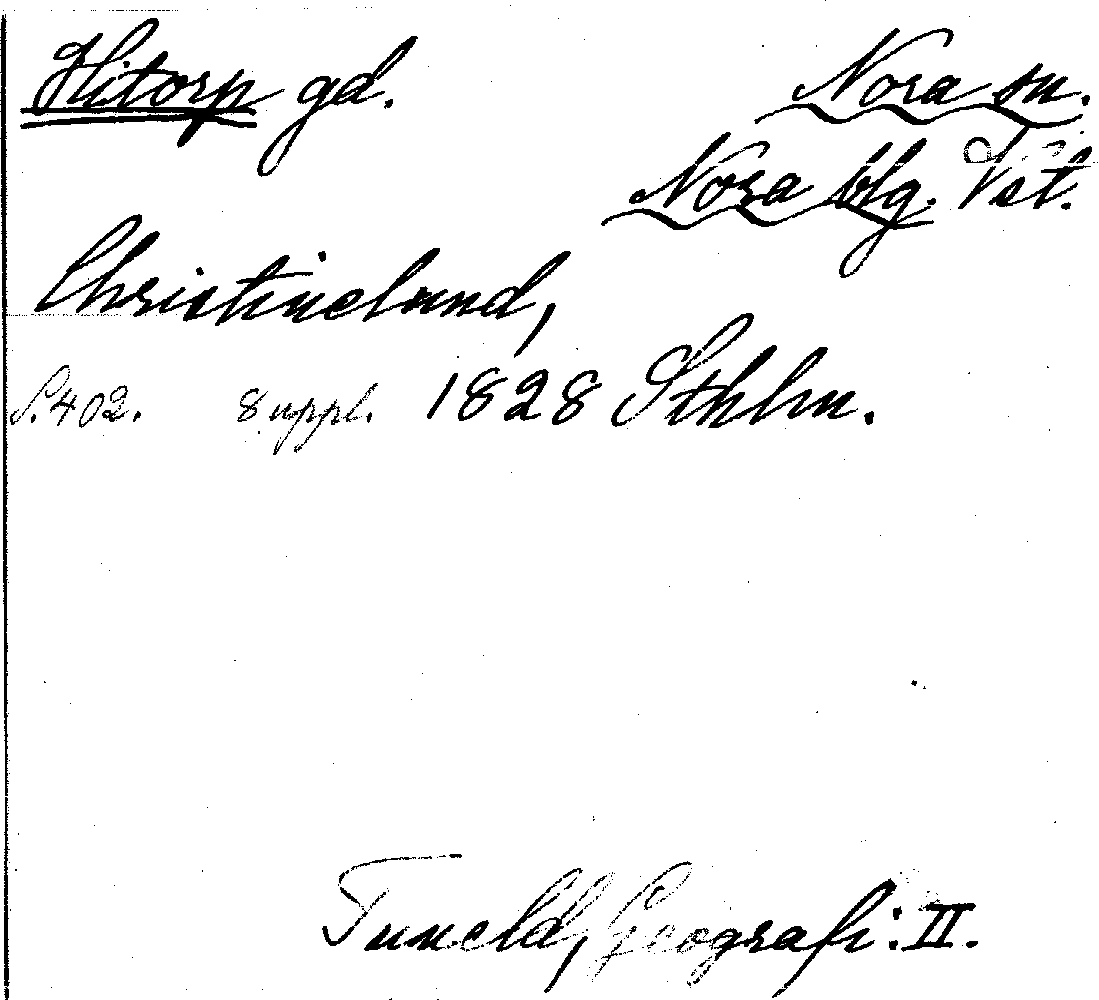 Hitorp gd. Nora sn.
Nora blg. Vst.
Christinelund,
S. 402. 8 uppl. 1828 Sthlm.
Tuneld, Geografi: II.